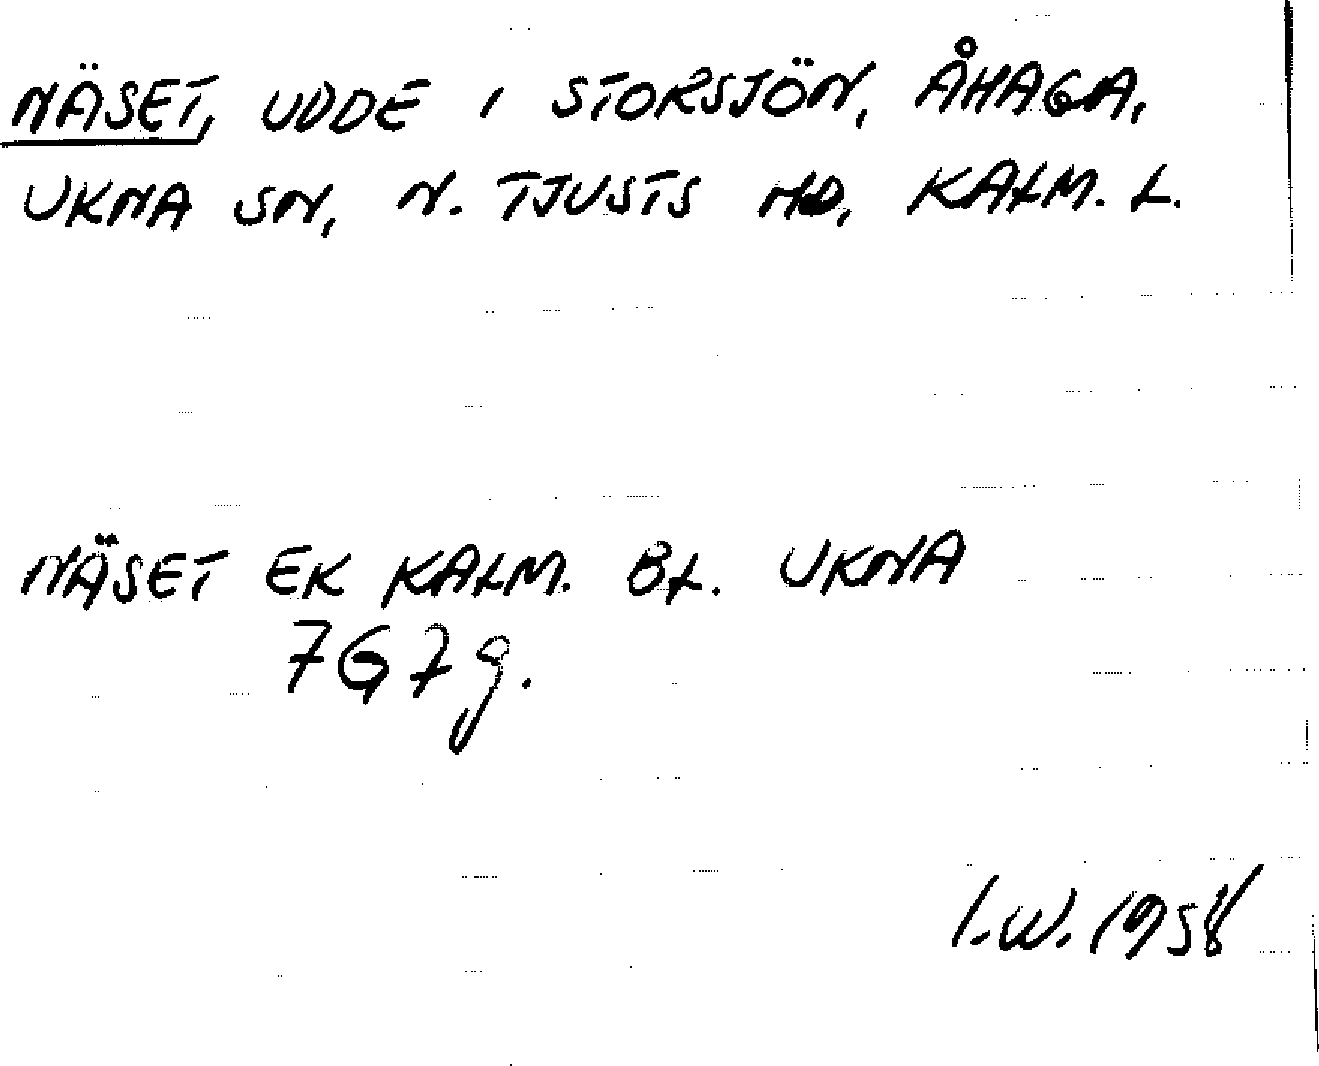 NÄSET, UDDE I STORSJÖN, ÅHAGA,
UKNA SN, N. TJUSTS HD, KALM. L.
NÄSET EK KALM. BL. UKNA
7G7g.
I.W. 1958